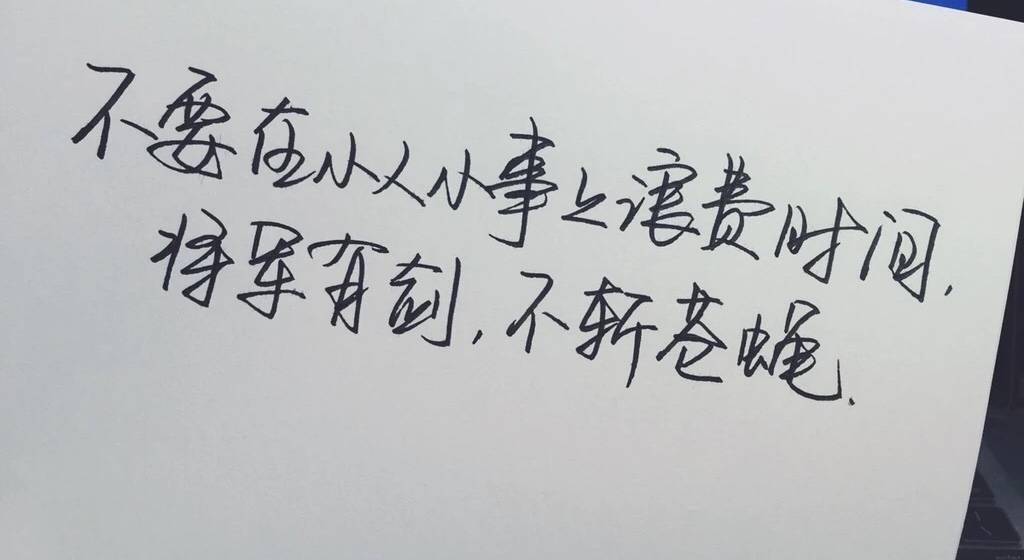 不要在小人小事上浪费时间.
将军有剑,不斩苍蝇.